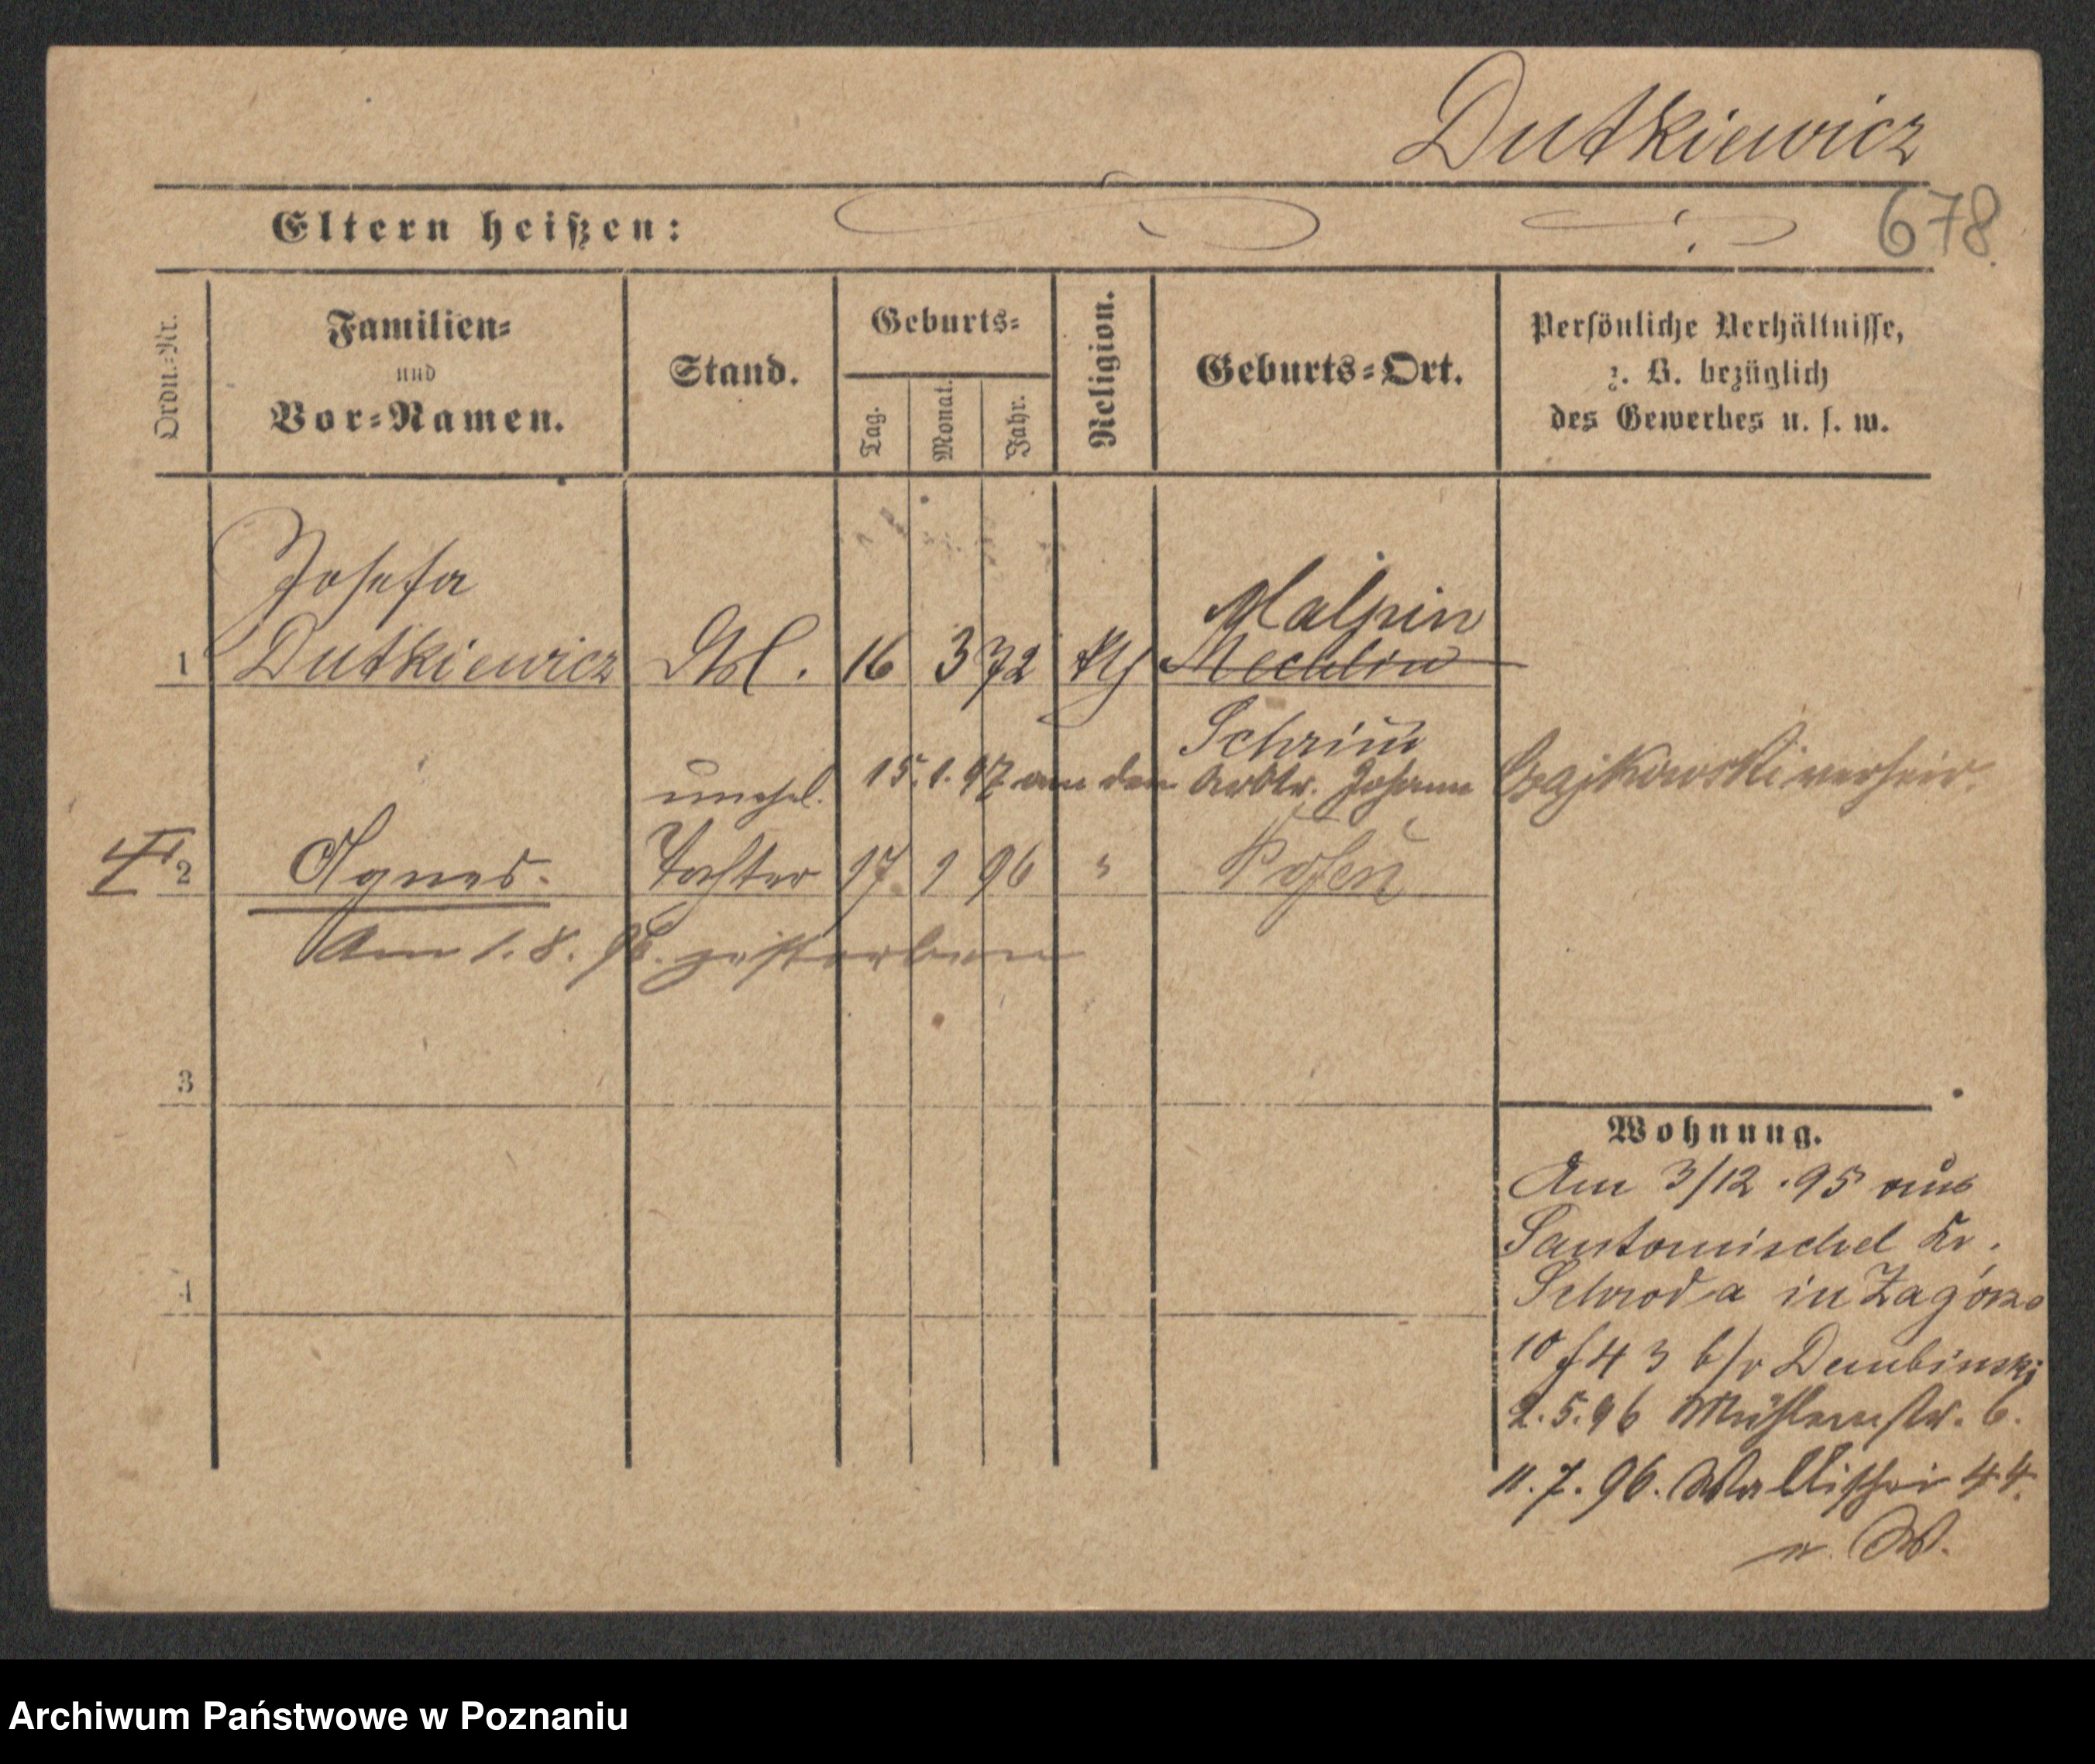 Dutkiewicz
678.
Eltern heißen:
Ordn.=Nr.
Familien=
und
Vor=Namen.
Stand.
Geburts=
Tag.
Monat.
Jahr.
Religion.
Geburts=Ort.
Persönliche Verhältnisse,
z. B. bezüglich
des Gewerbes u. s. w.
Josefa
Malpin
1 Dutkiewicz 16 3 72 kth Mechlin
Schrim
unehel. 15.1.97 an den Arbtr. Johann verheir.
2 Agnes. Tochter 17. 1 96 " Posen
Am 1.8.96. gestorben
3
4
Wohnung.
Am 3/12.95 aus
Santomischel Kr.
Schroda in Zagórze
10 b/v Dembinski
2.5.96 Mühlenstr. 6.
11.7.96. Wallischei 44.
Archiwum Państwowe w Poznaniu